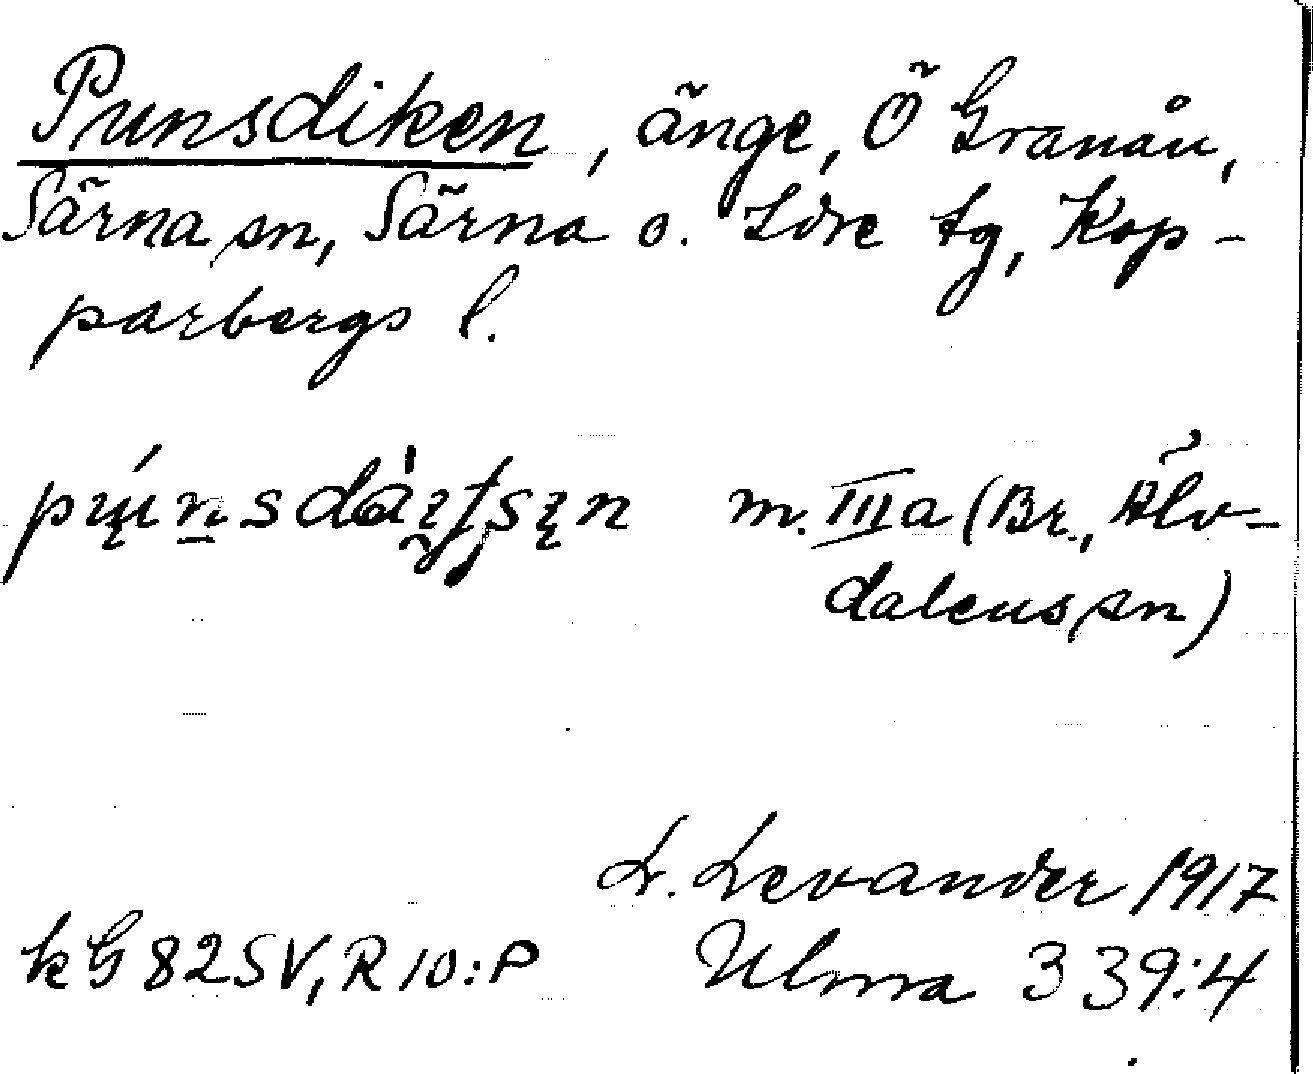 Punsdiken, änge, Ö Granån,
Särna sn, Särna o. Idre tg, Kop-
parbergs l.
m. IIIa (Br., Älv-
dalens sn)
L. Levander 1917
kG 82SV, R10:P Ulma 339:4